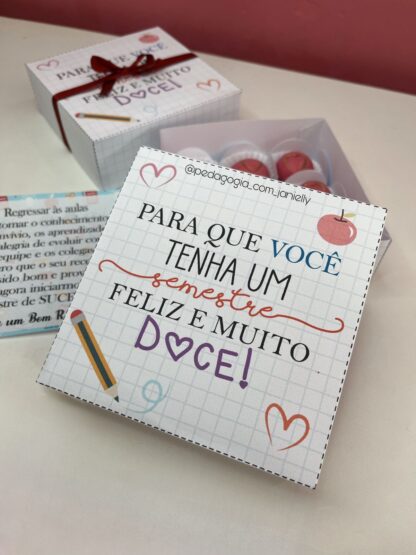 PARA QUE VOCÊ
FELIZ E MUITO
DOCE!
@pedagogia_com_janielly
PARA QUE VOCÊ
TENHA UM
semestre
FELIZ E MUITO
DOCE!
Regressar às aulas
tomar o conhecimento
vívio, os aprendizado
alegria de evoluir co
equipe e os colega
ero que o seu rec
sido bom e prov
agora iniciarm
stre de SUC
um Bom R